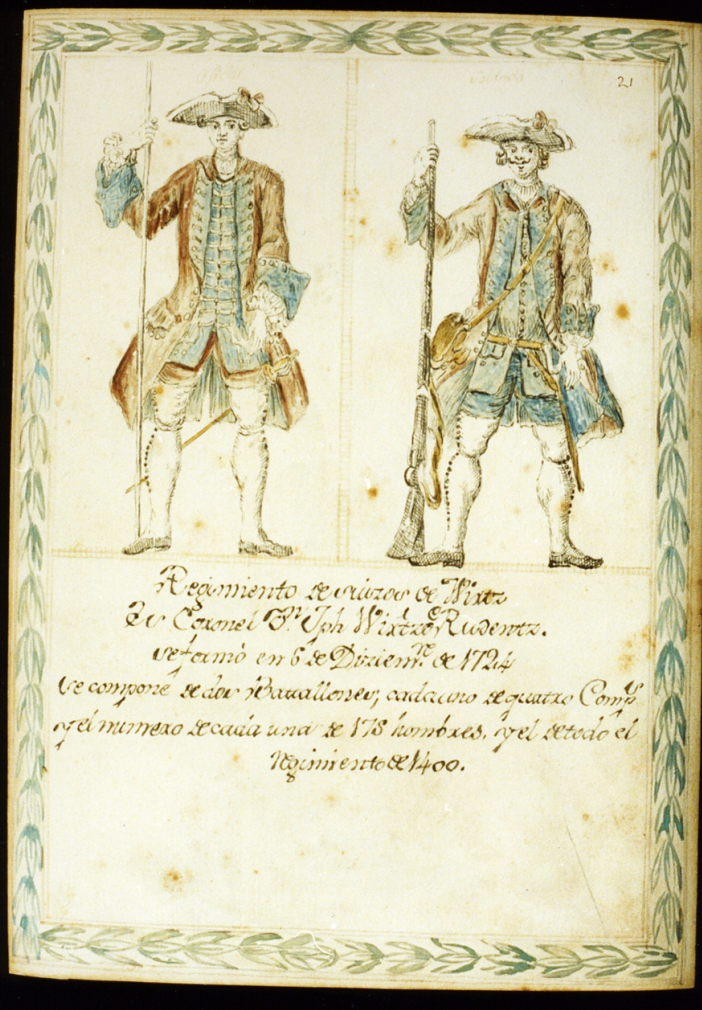 21
Regimiento de suizos de Wirtz
Es Coronel Dn. Jph Wirtz de Rudentz.
se formó en 6 de Diziemre. de 1724
se compone de dos Batallones, cada uno de quatro Comps
y el numero de cada una de 175 hombres, y el de todo el
regimiento de 1400.